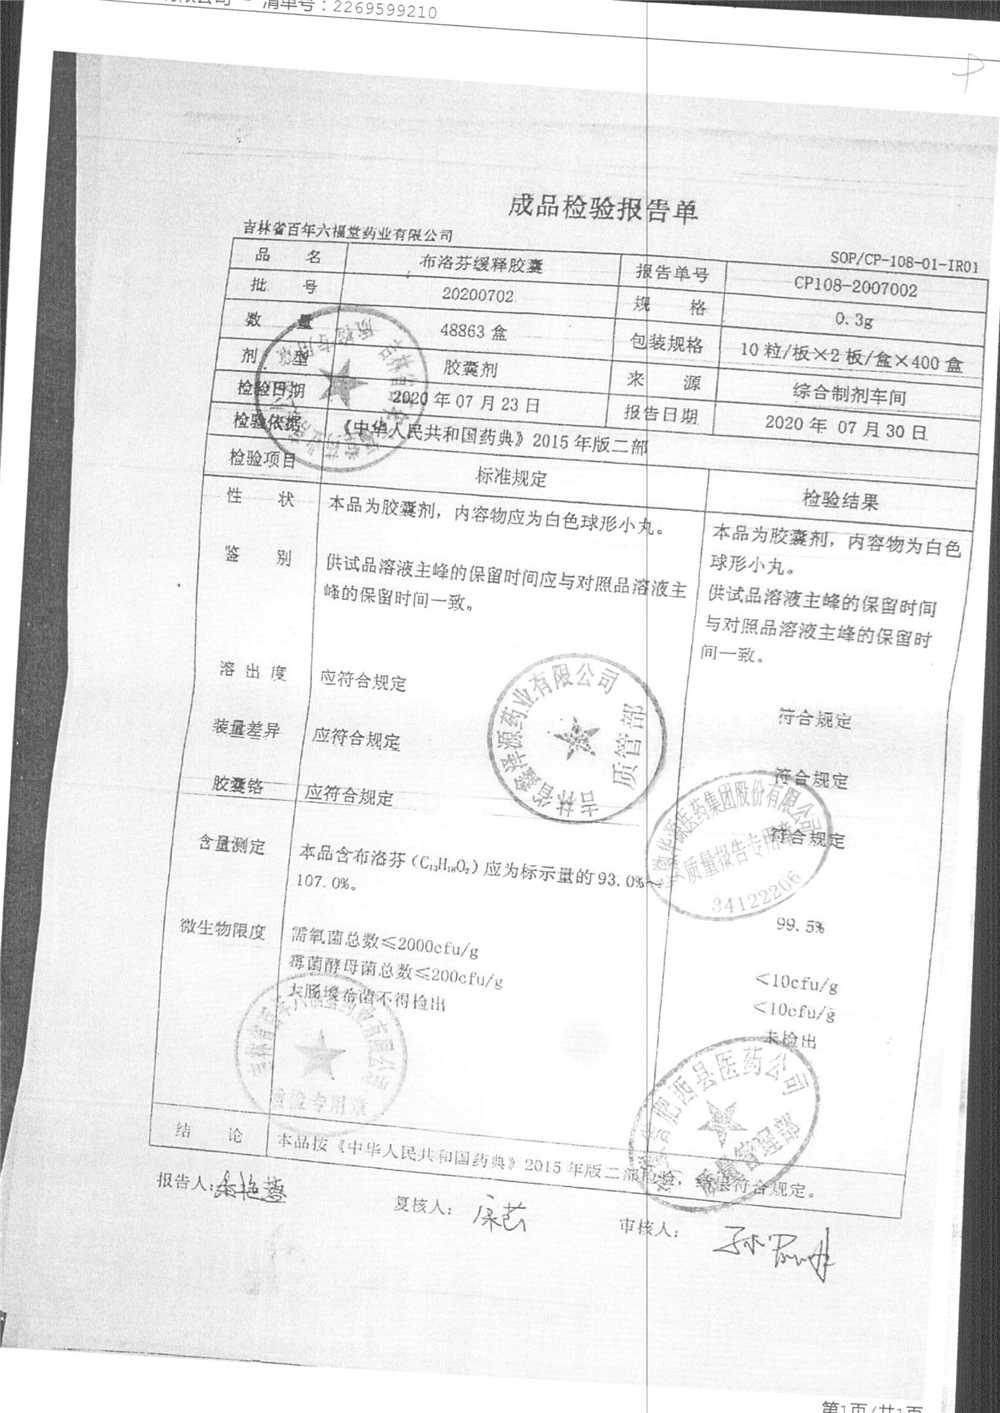 清单号：2269599210
成品检验报告单
吉林省百年六福堂药业有限公司
SOP/CP-108-01-IR01
品 名 布洛芬缓释胶囊 报告单号 CP108-2007002
批 号 20200702 规 格 0.3g
数 量 48863 盒 包装规格 10 粒/板×2 板/盒×400 盒
剂 型 胶囊剂 来 源 综合制剂车间
检验日期 2020 年 07 月 23 日 报告日期 2020 年 07 月 30 日
检验依据 《中华人民共和国药典》2015 年版二部
检验项目 标准规定 检验结果
性 状 本品为胶囊剂，内容物应为白色球形小丸。 本品为胶囊剂，内容物为白色
球形小丸。
鉴 别 供试品溶液主峰的保留时间应与对照品溶液主 供试品溶液主峰的保留时间
峰的保留时间一致。 与对照品溶液主峰的保留时
间一致。
溶 出 度 应符合规定 符合规定
装量差异 应符合规定 符合规定
胶囊铬 应符合规定 符合规定
含量测定 本品含布洛芬（C₁₃H₁₈O₂）应为标示量的 93.0%～ 99.5%
107.0%。
微生物限度 需氧菌总数≤2000cfu/g <10cfu/g
霉菌酵母菌总数≤200cfu/g <10cfu/g
大肠埃希菌不得检出 未检出
结 论 本品按《中华人民共和国药典》2015 年版二部检验，结果符合规定。
报告人：
复核人：
审核人：
吉林省鑫泽源药业有限公司
质管部
安徽华源医药集团股份有限公司
质量报告专用章
34122206
吉林省百年六福堂药业有限公司
质检专用章
安徽省肥西县医药公司
质量管理部
第1页/共1页